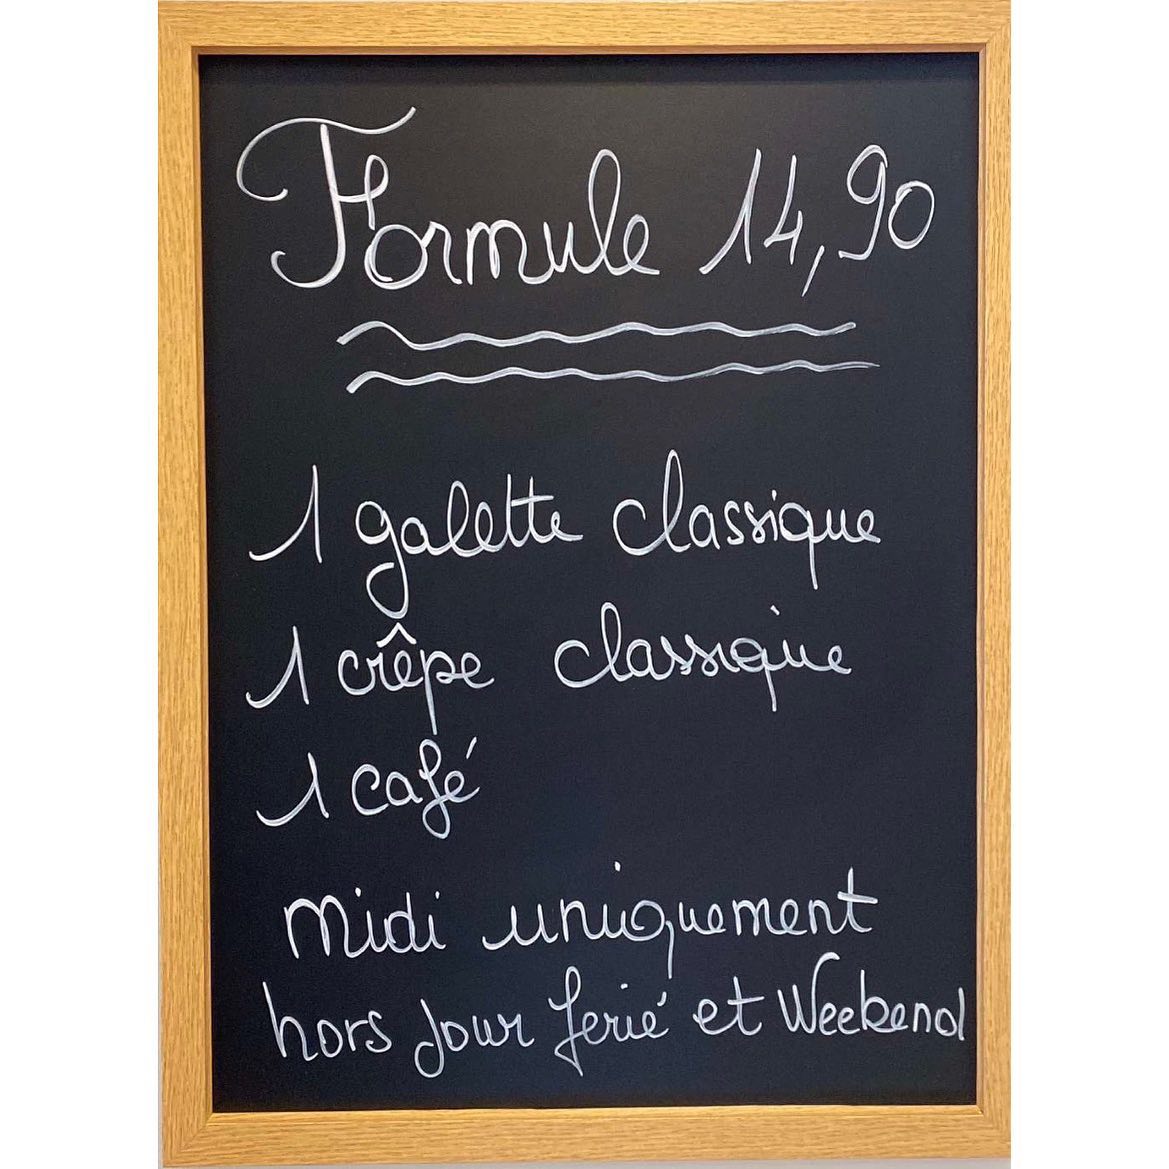 Formule 14,90
1 galette classique
1 crêpe classique
1 café
Midi uniquement
hors jour ferié et Weekend